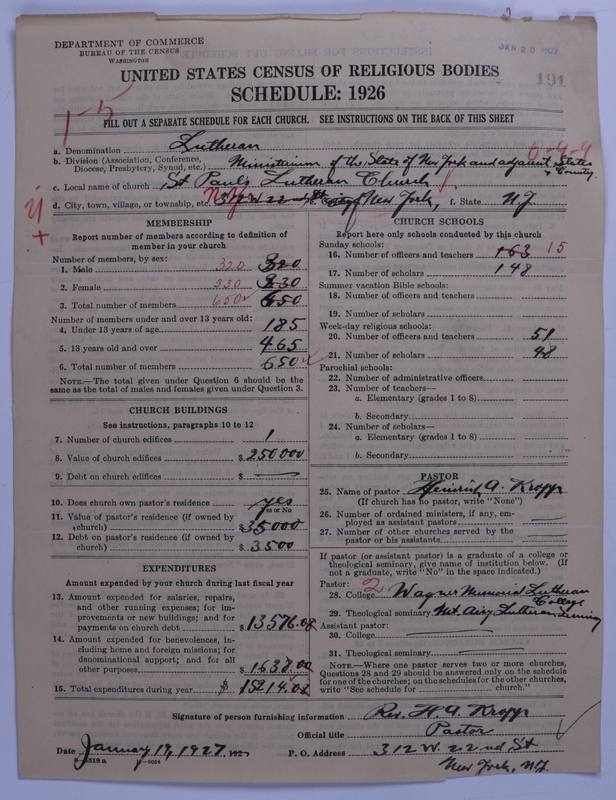 DEPARTMENT OF COMMERCE
BUREAU OF THE CENSUS
WASHINGTON
JAN 20 1927
191
UNITED STATES CENSUS OF RELIGIOUS BODIES
SCHEDULE: 1926
1-5
FILL OUT A SEPARATE SCHEDULE FOR EACH CHURCH. SEE INSTRUCTIONS ON THE BACK OF THIS SHEET
a. Denomination Lutheran
b. Division (Association, Conference, Diocese, Presbytery, Synod, etc.) Ministerium of the State of New York and adjacent States & Country.
c. Local name of church St Paul's Lutheran Church
d. City, town, village, or township, etc. N.Y. 312 W. 22nd St e. County New York, f. State N.Y.
MEMBERSHIP
Report number of members according to definition of member in your church
Number of members, by sex:
1. Male 320 320
2. Female 330 330
3. Total number of members 650 650
Number of members under and over 13 years old:
4. Under 13 years of age 185
5. 13 years old and over 465
6. Total number of members 650
NOTE.—The total given under Question 6 should be the same as the total of males and females given under Question 3.
CHURCH BUILDINGS
See instructions, paragraphs 10 to 12
7. Number of church edifices 1
8. Value of church edifices $ 250000
9. Debt on church edifices $ —
10. Does church own pastor's residence yes
Yes or No
11. Value of pastor's residence (if owned by church) $ 35000
12. Debt on pastor's residence (if owned by church) $ 3500
EXPENDITURES
Amount expended by your church during last fiscal year
13. Amount expended for salaries, repairs, and other running expenses; for improvements or new buildings; and for payments on church debt $ 13576.08
14. Amount expended for benevolences, including home and foreign missions; for denominational support; and for all other purposes $ 1638.00
15. Total expenditures during year $ 15214.08
CHURCH SCHOOLS
Report here only schools conducted by this church
Sunday schools:
16. Number of officers and teachers 163 15
17. Number of scholars 148
Summer vacation Bible schools:
18. Number of officers and teachers
19. Number of scholars
Week-day religious schools:
20. Number of officers and teachers 51
21. Number of scholars 48
Parochial schools:
22. Number of administrative officers
23. Number of teachers—
a. Elementary (grades 1 to 8)
b. Secondary
24. Number of scholars—
a. Elementary (grades 1 to 8)
b. Secondary
PASTOR
25. Name of pastor Heinrich A. Kropp
(If church has no pastor, write "None")
26. Number of ordained ministers, if any, employed as assistant pastors
27. Number of other churches served by the pastor or his assistants
If pastor (or assistant pastor) is a graduate of a college or theological seminary, give name of institution below. (If not a graduate, write "No" in the space indicated.)
Pastor:
28. College 2 Wagner Memorial Lutheran College
29. Theological seminary Mt. Airy Lutheran Seminary
Assistant pastor:
30. College
31. Theological seminary
NOTE.—Where one pastor serves two or more churches, Questions 28 and 29 should be answered only on the schedule for one of the churches; on the schedules for the other churches, write "See schedule for church."
Signature of person furnishing information Rev. H. A. Kropp
Official title Pastor
Date January 19, 1927
P. O. Address 312 W. 22nd St
New York, N.Y.